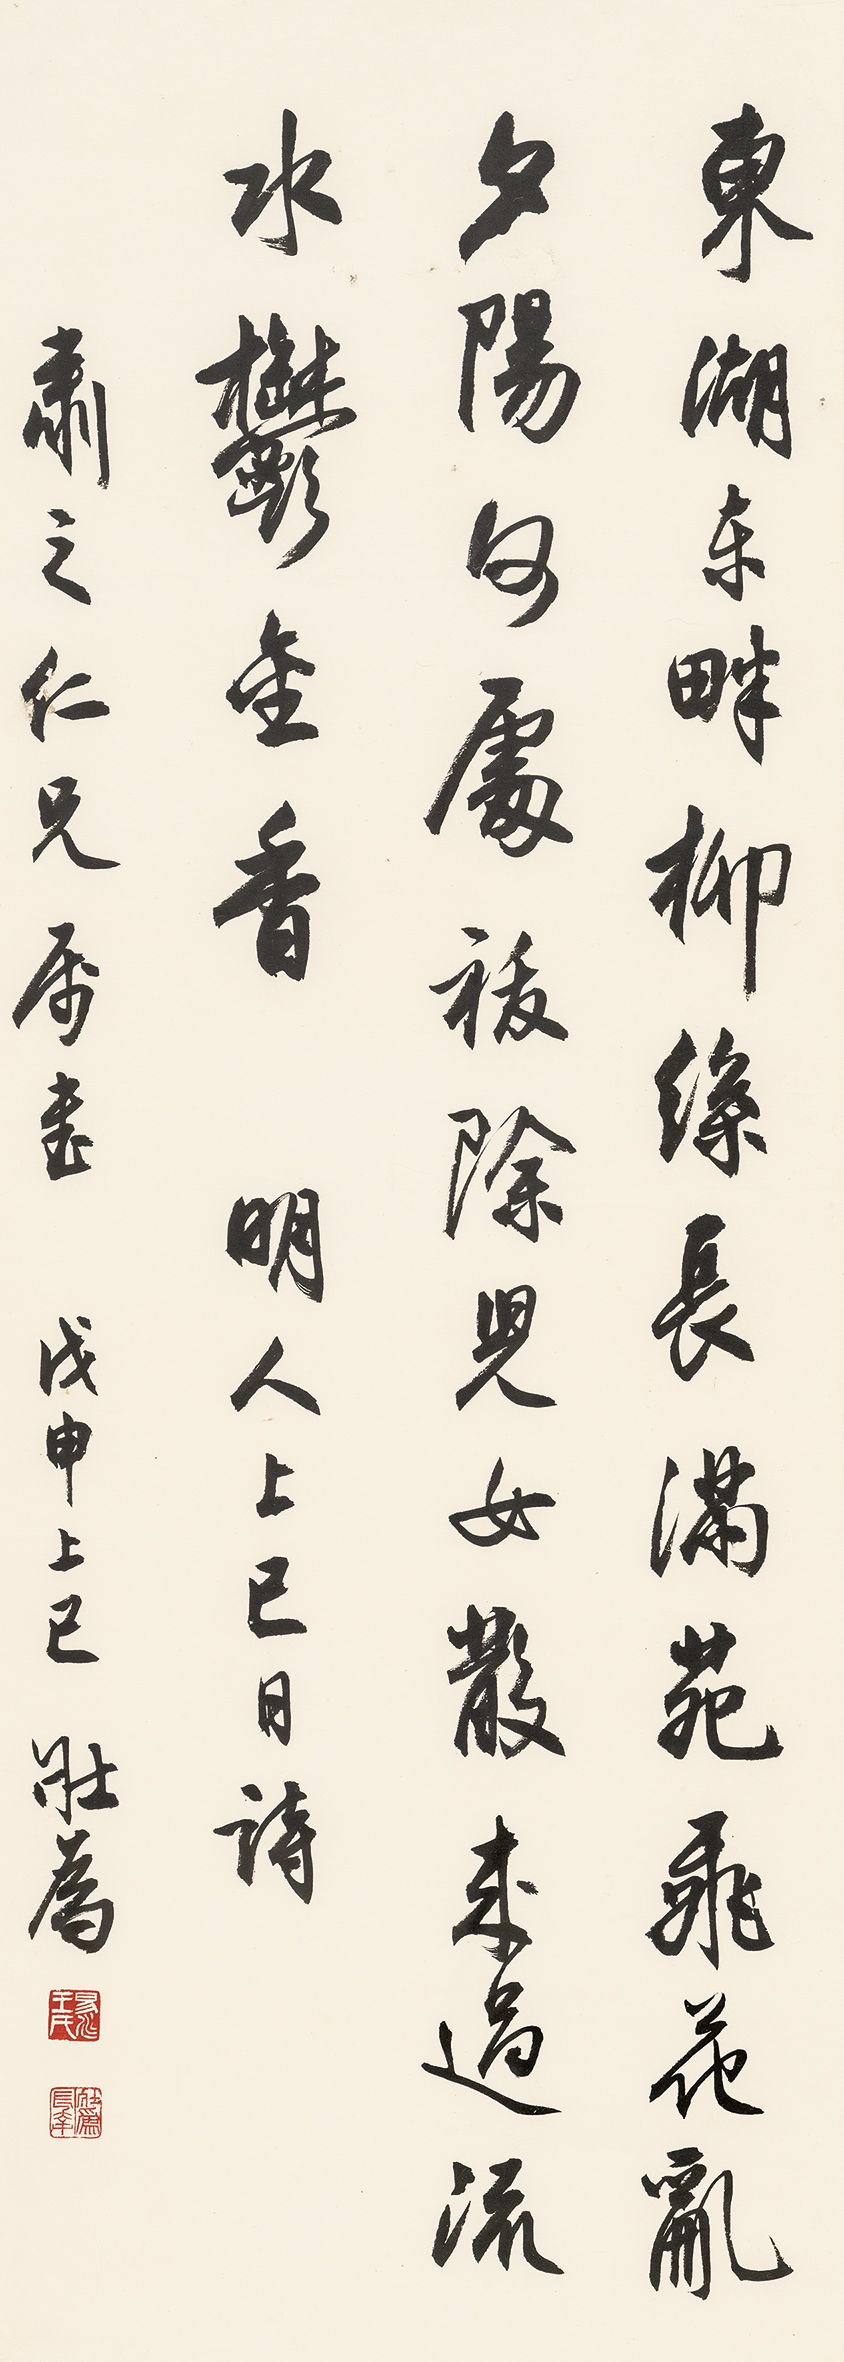 東湖东畔柳絛長滿苑飛花亂
夕陽何處祓除兒女散来過流
水鬱金香 明人上巳日詩
肅之仁兄属書 戊申上巳 壯為
壯為長年